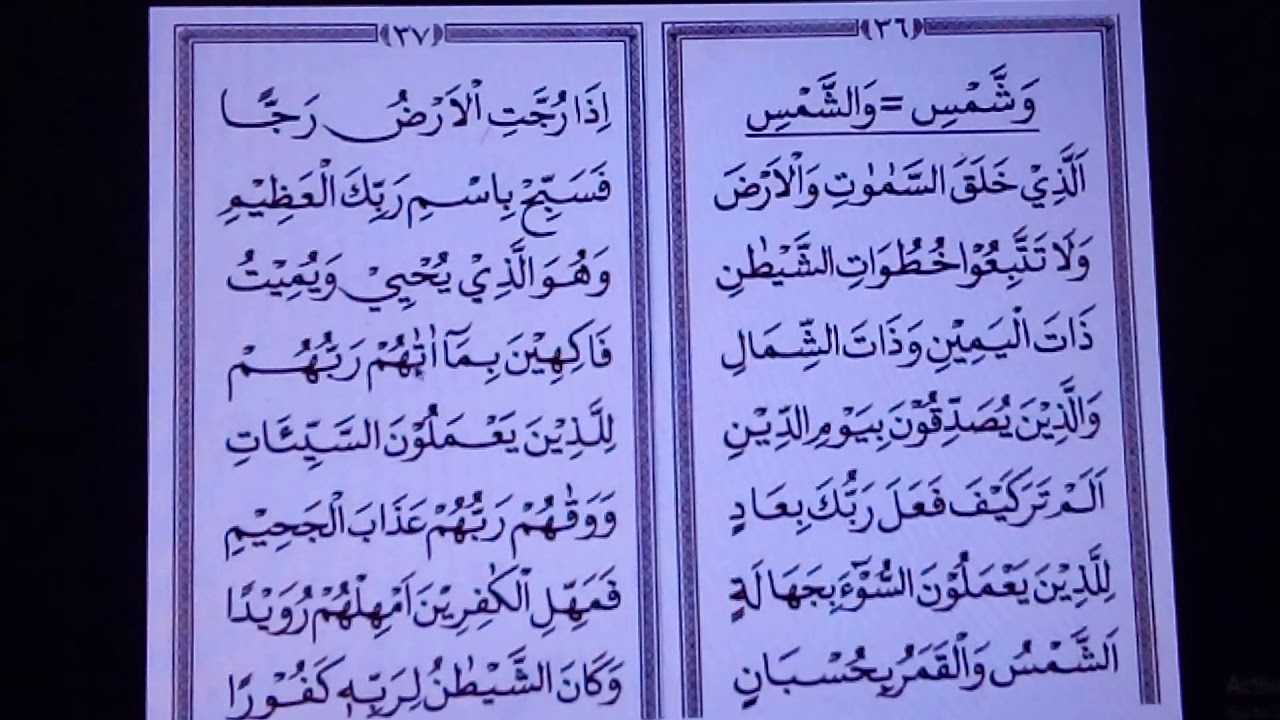 ﴿٣٦﴾
وَشَّمْسِ = وَالشَّمْسِ
اَلَّذِيْ خَلَقَ السَّمٰوٰتِ وَالْاَرْضَ
وَلَا تَتَّبِعُوْا خُطُوَاتِ الشَّيْطٰنِ
ذَاتَ الْيَمِيْنِ وَذَاتَ الشِّمَالِ
وَالَّذِيْنَ يُصَدِّقُوْنَ بِيَوْمِ الدِّيْنِ
اَلَمْ تَرَكَيْفَ فَعَلَ رَبُّكَ بِعَادٍ
لِلَّذِيْنَ يَعْمَلُوْنَ السُّوْٓءَ بِجَهَالَةٍ
اَلشَّمْسُ وَالْقَمَرُ بِحُسْبَانٍ
﴿٣٧﴾
اِذَا رُجَّتِ الْاَرْضُ رَجًّا
فَسَبِّحْ بِاسْمِ رَبِّكَ الْعَظِيْمِ
وَهُوَ الَّذِيْ يُحْيِيْ وَيُمِيْتُ
فَاكِهِيْنَ بِمَآ اٰتٰهُمْ رَبُّهُمْ
لِلَّذِيْنَ يَعْمَلُوْنَ السَّيِّئَاتِ
وَوَقٰهُمْ رَبُّهُمْ عَذَابَ الْجَحِيْمِ
فَمَهِّلِ الْكٰفِرِيْنَ اَمْهِلْهُمْ رُوَيْدًا
وَكَانَ الشَّيْطٰنُ لِرَبِّهٖ كَفُوْرًا